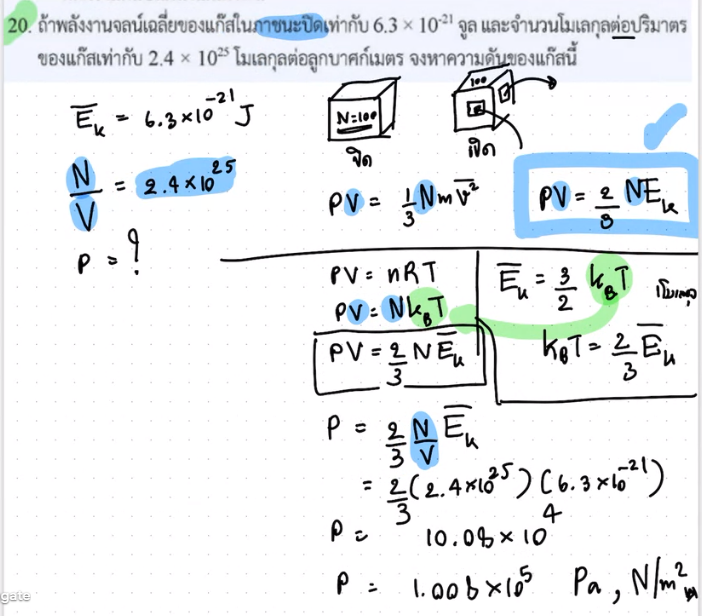 20. ถ้าพลังงานจลน์เฉลี่ยของแก๊สในภาชนะปิดเท่ากับ 6.3 × 10⁻²¹ จูล และจำนวนโมเลกุลต่อปริมาตร
ของแก๊สเท่ากับ 2.4 × 10²⁵ โมเลกุลต่อลูกบาศก์เมตร จงหาความดันของแก๊สนี้
E̅ₖ = 6.3×10⁻²¹ J
N=100
100
ปิด
เปิด
N/V = 2.4×10²⁵
P = ?
PV = 1/3 Nmv̅²
PV = 2/3 NE̅ₖ
PV = nRT
PV = Nk_BT
PV = 2/3 NE̅ₖ
E̅ₖ = 3/2 k_BT
k_BT = 2/3 E̅ₖ
P = 2/3 N/V E̅ₖ
= 2/3 (2.4×10²⁵)(6.3×10⁻²¹)
P = 10.08×10⁴
P = 1.008×10⁵ Pa, N/m²
gate